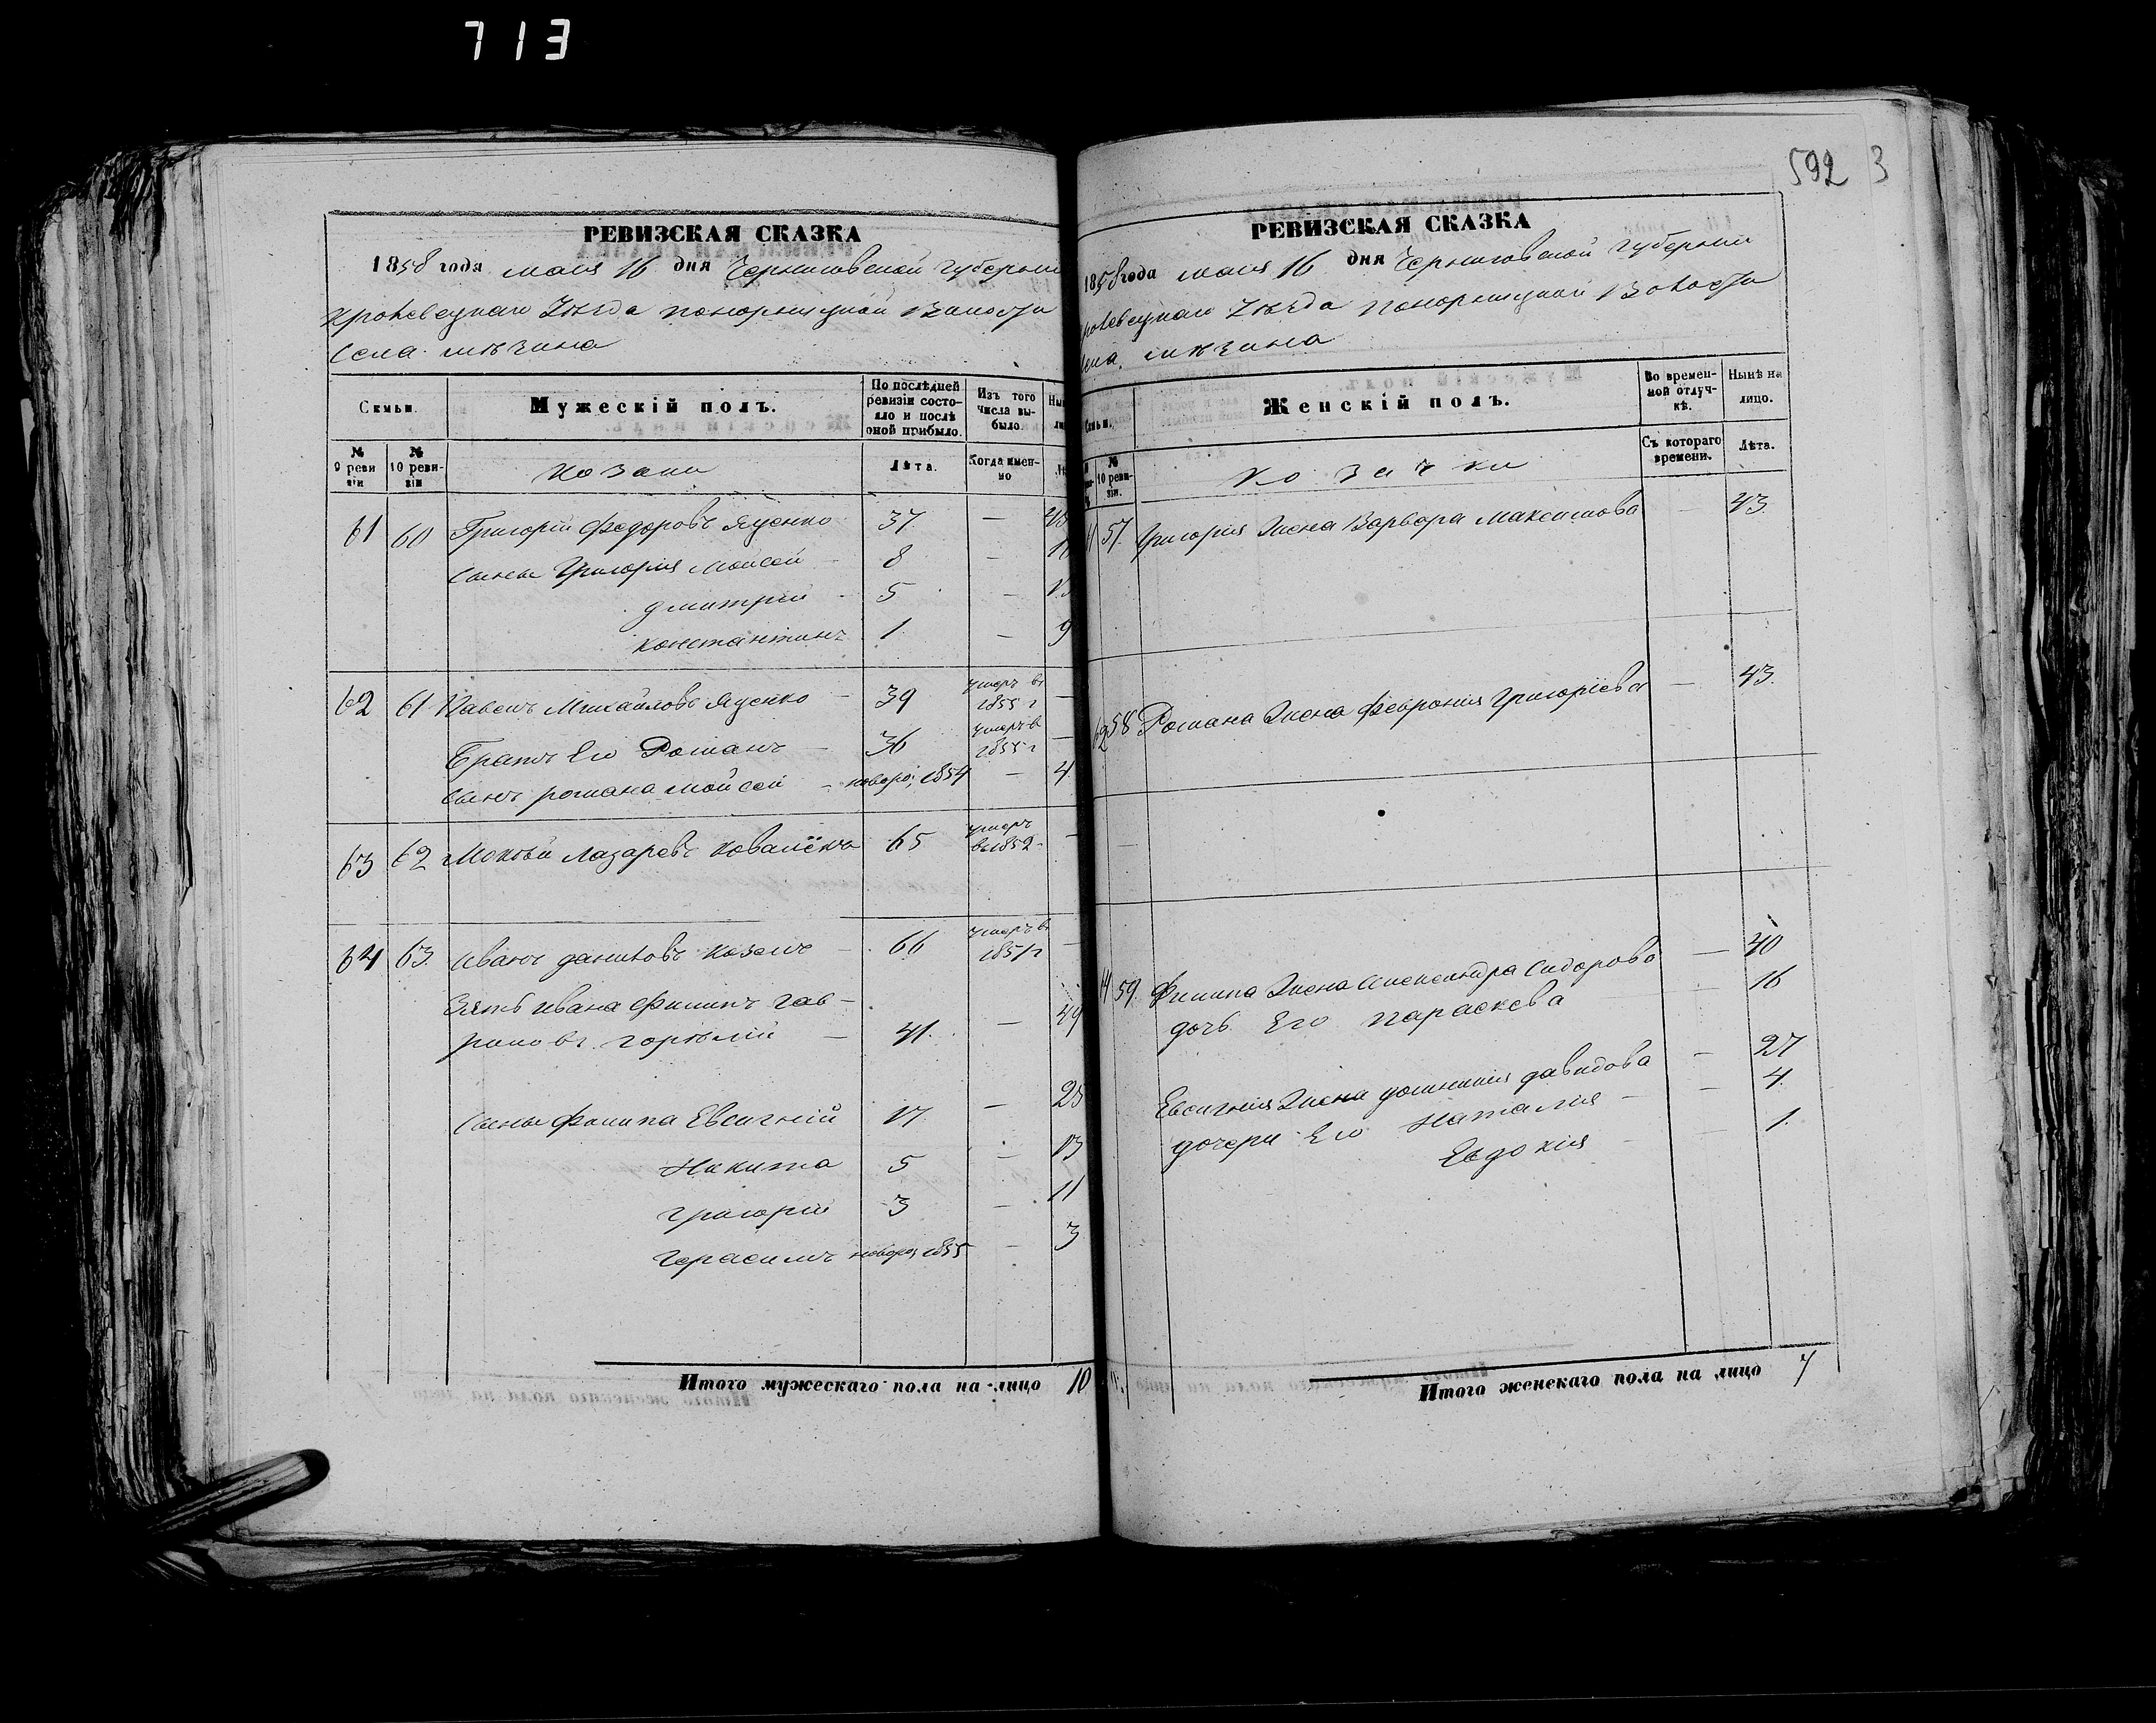 713
592 3
РЕВИЗСКАЯ СКАЗКА
1858 года мая 16 дня Черниговской губернии
Кролевецкаго Уезда Понорницкой Волости
Села Мезина
Семьи.
Мужескій полъ.
По послѣдней ревизіи состояло и послѣ оной прибыло.
Изъ того числа выбыло.
№ 9 ревизіи
№ 10 ревизіи
Козаки
Лѣта.
Когда именно
61 60 Григорій Федоровъ Яценко 37 —
Сыны Григорія Мойсей 8 —
Дмитрій 5 —
Константинъ 1 — 9
62 61 Павелъ Михайловъ Яценко — 39 умеръ въ 1855 г —
Братъ Его Романъ — 36 умеръ въ 1855 г —
Сынъ Романа Мойсей — новорож 1854 — 4
63 62 Мокѣй Лазаревъ 65 умеръ въ 1852 —
64 63 Иванъ Даниловъ Козелъ — 66 умеръ въ 1851 г —
Зять Ивана Филипъ Гав-
риловъ — 41 — 49
Сыны Филипа Евсигній 17 — 25
Никита 5 — 13
Григорій 3 — 11
Герасимъ новорож 1855 — 3
Итого мужескаго пола на-лицо 10
РЕВИЗСКАЯ СКАЗКА
1858 года мая 16 дня Черниговской Губернии
Уезда Понорницкой Волости
Мезина
Женскій полъ.
Во временной отлучкѣ.
Нынѣ на лицо.
№ 10 ревизіи.
Козачки
Съ котораго времени.
Лѣта.
57 Григорія Жена Варвара Максимова — 43
62 58 Романа Жена Февронія Григоріева — 43
59 Филипа Жена Александра Сидорова — 40
дочь Его Параскева 16
Евсигнія Жена Домникія Давидова — 27
дочери Его Наталия — 4
Евдокія — 1
Итого женскаго пола на лицо 7